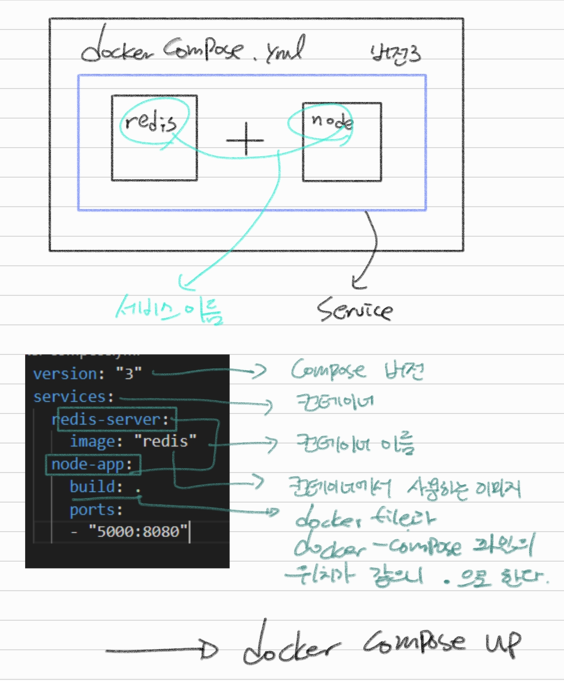 docker compose.yml 버전3
redis + node
서비스 이름
Service
version: "3"
services:
redis-server:
image: "redis"
node-app:
build: .
ports:
- "5000:8080"
Compose 버전
컨테이너
컨테이너 이름
컨테이너에서 사용하는 이미지
docker file과
docker-compose 파일의
위치가 같으니 . 으로 한다.
docker compose up